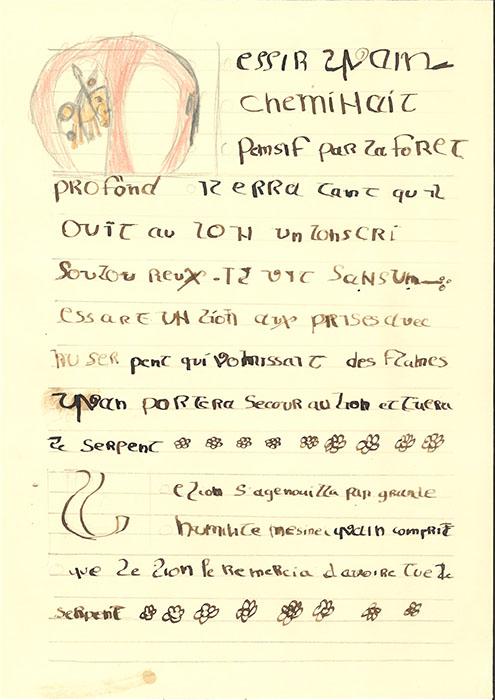 Messir yvain
cheminait
pensif par la foret
profond il erra tant qu il
ouit au loin un lons cri
doulou reux - il vit sans un
essart un lion aux prises avec
nu ser pent qui vomissait des flames
yvan portera secour au lion et tuera
le serpent
Le lion s'agenouilla par grande
humilite mesire yvain comprit
que le lion le remercia d avoire tue le
serpent